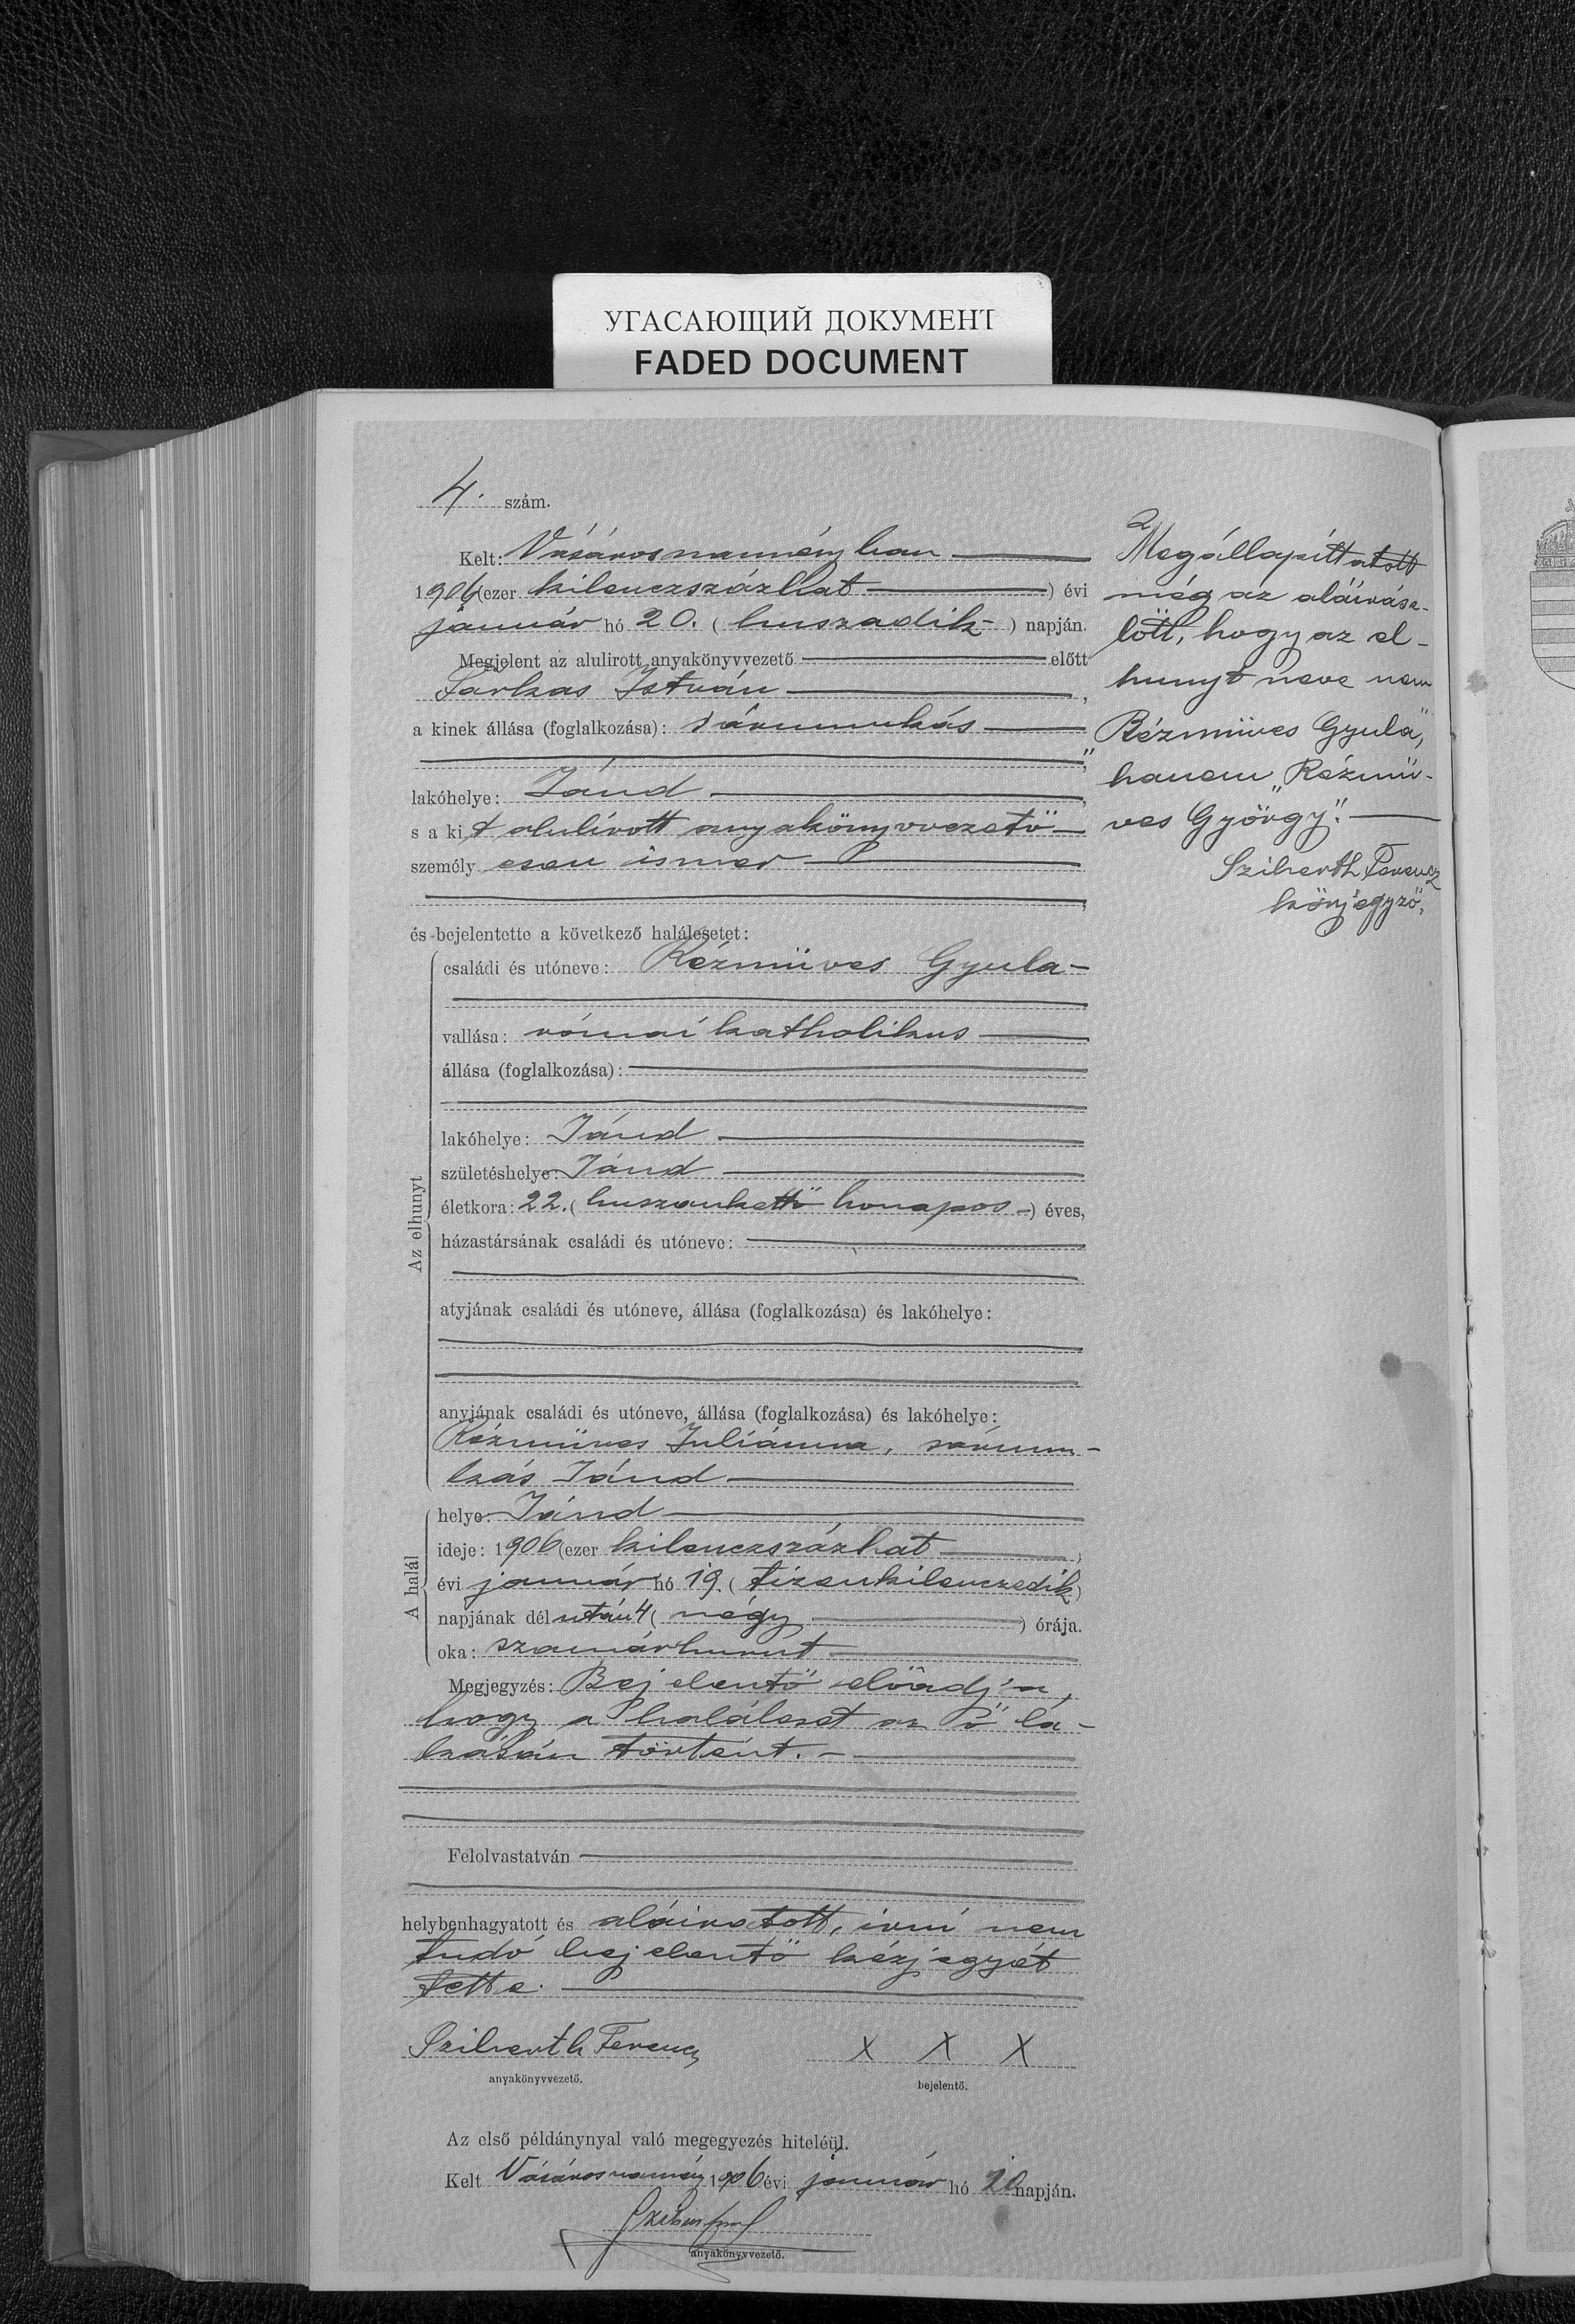 УГАСАЮЩИЙ ДОКУМЕНТ
FADED DOCUMENT
4. szám.
Kelt: Vásárosnaményban
1906 (ezer kilenczszázhat) évi
január hó 20. (huszadik) napján.
Megjelent az alulirott anyakönyvvezető előtt
Farkas István,
a kinek állása (foglalkozása): sármunkás
lakóhelye: Jánd,
s a kit alulirott anyakönyvvezető
személyesen ismer
és bejelentette a következő halálesetet:
Az elhunyt
családi és utóneve: Rézmüves Gyula
vallása: római katholikus
állása (foglalkozása):
lakóhelye: Jánd
születéshelye: Jánd
életkora: 22. (huszonkettő honapos) éves,
házastársának családi és utóneve:
atyjának családi és utóneve, állása (foglalkozása) és lakóhelye:
anyjának családi és utóneve, állása (foglalkozása) és lakóhelye:
Rézmüves Juliánna, sármun-
kás Jánd
A halál
helye: Jánd
ideje: 1906 (ezer kilenczszázhat)
évi január hó 19. (tizenkilenczedik)
napjának délután 4 (négy) órája.
oka: szamárhurut
Megjegyzés: Bejelentő előadja,
hogy a haláleset az ő la-
kásán történt.
Felolvastatván
helybenhagyatott és aláiratott, irni nem
tudó bejelentő kézjegyét
tette.
Sziberth Ferencz
anyakönyvvezető.
X X X
bejelentő.
Az első példánynyal való megegyezés hiteléül.
Kelt Vásárosnamény 1906 évi január hó 20 napján.
anyakönyvvezető.
Megállapittatott
még az aláirás e-
lőtt, hogy az el-
hunyt neve nem
"Rézmüves Gyula",
hanem "Rézmü-
ves György".
Sziberth Ferencz
körjegyző,